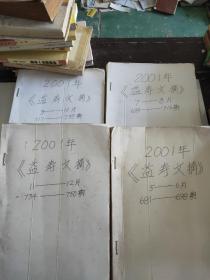 2001年
《益寿文摘》
9——10月
717——733期
2001年
《益寿文摘》
7——8月
699——716期
2001年
《益寿文摘》
11——12月
734——750期
2001年
《益寿文摘》
5——6月
681——698期